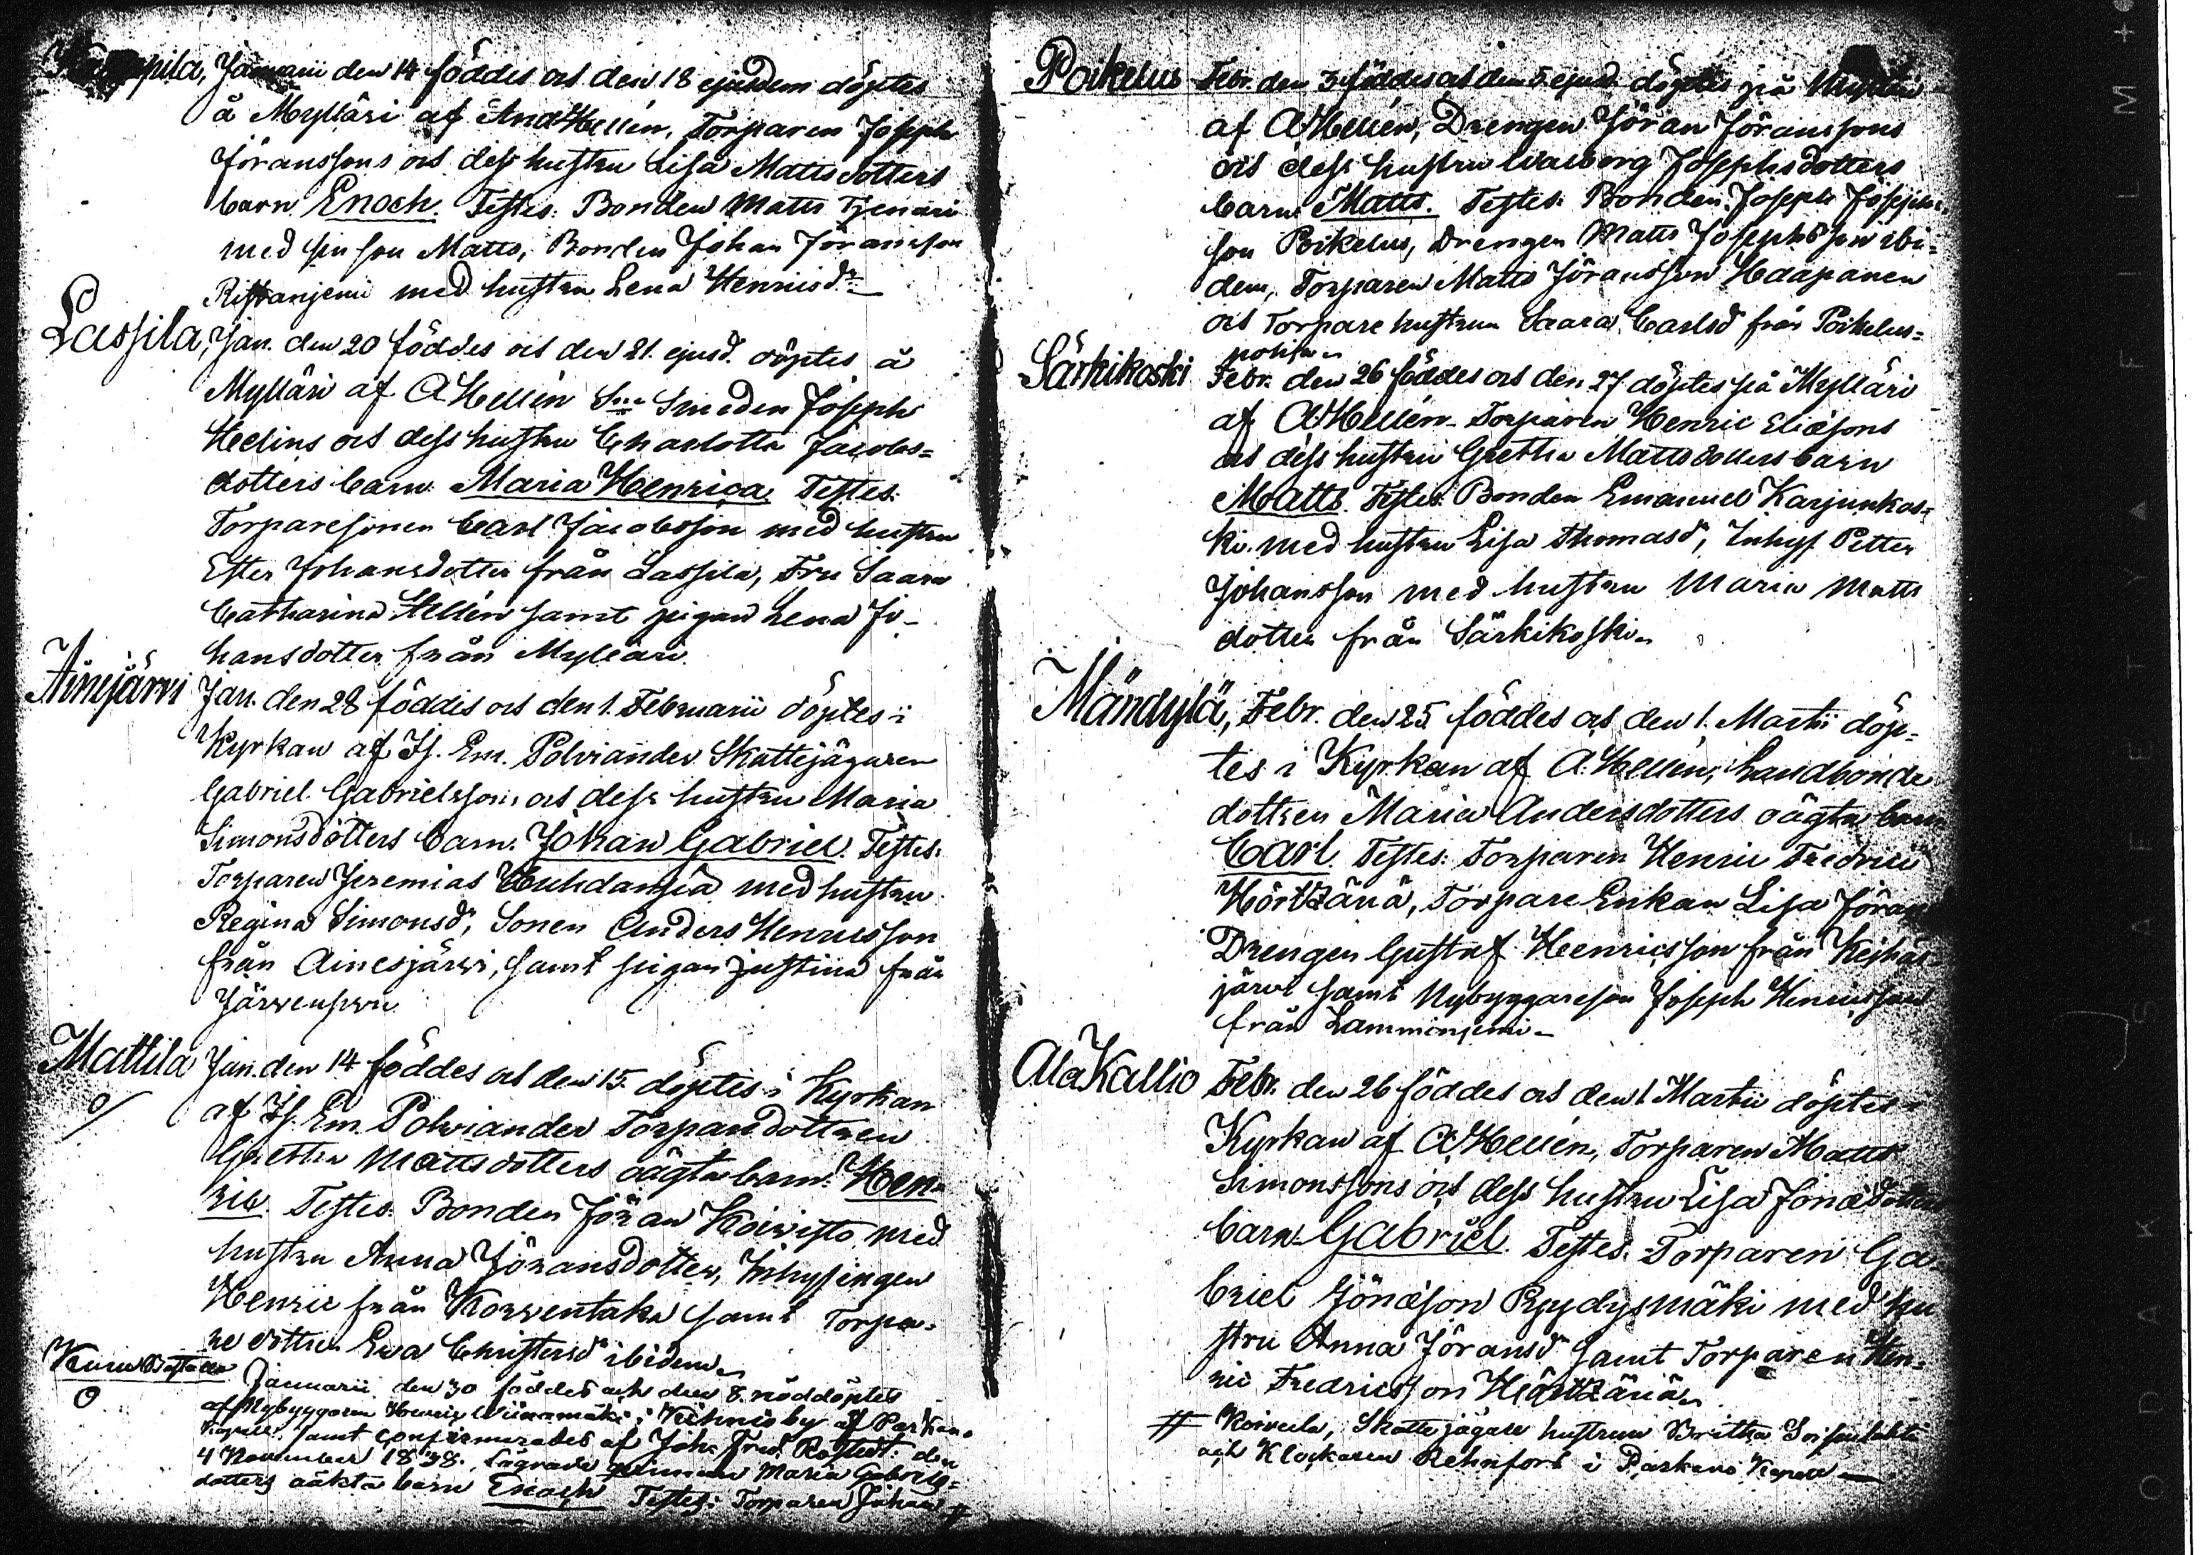 Januarii den 14 föddes och den 18 ejusdem döptes
å Mylläri af And Hellén, Torparen Joseph
Jöranssons och dess hustru Lisa Mattsdotters
barn Enoch. Testes: Bonden Matts
med sin son Matts, Bonden Johan Jöransson
Ristaniemi med hustru Lena Henricsdr
Lassila, Jan. den 20 föddes och den 21. ejusd. döptes å
Mylläri af A Hellén Smeden Joseph
Hedins och dess hustru Charlotta Jacobs=
dotters barn Maria Henrica Testes:
Torparesonen Carl Jacobsson med hustru
Ester Johansdotter från Lassila, Fru Saara
Catharina Hellén samt pigan Lena Jo-
hansdotter från Mylläri
Ainejärvi Jan. den 28 föddes och den 1. Februarii döptes i
Kyrkan af Is. Em. Polviander Skattejägaren
Gabriel Gabrielssons och dess hustru Maria
Simonsdotters barn Johan Gabriel. Testes:
Torparen Jeremias med hustru
Regina Simonsdr, Sonen Anders Henricsson
från Ainesjärvi, samt pigan Justina från
Järvenpää
Mattila Jan. den 14 föddes och den 15. döptes i Kyrkan
af Is. Em. Polviander Torparedottren
Gretha Mattsdotters oägta barn Hen=
ric. Testes: Bonden Jöran Koivisto med
hustru Anna Jöransdotter, Inhysingen
Henric från Korventaka samt Torpa=
redottren Eva Christersdr ibidem
Januarii den 30 föddes och den 8. nöddöptes
af Nybyggaren Henric i Kihniöby af Parkano
Kapell samt confirmerades af Joh. Fred. den
4 November 1838. Lägrade qvinnan Maria Gabriels-
dotters oäkta barn Enoch Testes: Torparen Johan #
Poikelus Febr. den 3 föddes och den 5 ejusd. döptes på Mylläri
af A Hellén, Drengen Jöran Jöranssons
och dess hustru Walborg Josephsdotters
barn Matts. Testes: Bonden Joseph Josephs=
son Poikelus, Drengen Matts Josephsson ibi=
dem, Torparen Matts Jöransson Haapanen
och Torpare hustrun Saara Carlsdr från Poikelus=
Särkikoski Febr. den 26 föddes och den 27 döptes på Mylläri
af A Hellén Torparen Henric Eliæsons
och dess hustru Gretha Mattsdotters barn
Matts. Testes: Bonden Emanuel Karjunkos=
ki med hustru Lisa Thomasdr, Inhys. Petter
Johansson med hustru Maria Matts
dotter från Särkikoski
Mändylä, Febr. den 25 föddes och den 1. Martii döp=
tes i Kyrkan af A. Hellén, Landbonde
dottren Maria Andersdotters oägta barn
Carl. Testes: Torparen Henric Fredric
Hörtzänä, Torpare Enkan Lisa Jörans
Drengen Gustaf Henricsson från
järvi samt Nybyggareson Joseph Henricsson
från Lamminiemi
AlaKallio Febr. den 26 föddes och den 1 Martii döptes i
Kyrkan af A Hellén, Torparen Matts
Simonssons och dess hustru Lisa Jonædotters
barn Gabriel. Testes: Torparen Ga=
briel Jonæson Pöydysmäki med hu
stru Anna Jöransdr samt Torparen Hen=
ric Fredricsson Hörtzänä
# Koivula, Skattejägare hustrun Britha
och Klockaren Rehnfors i Parkano Kapell
KODAK SAFETY FILM